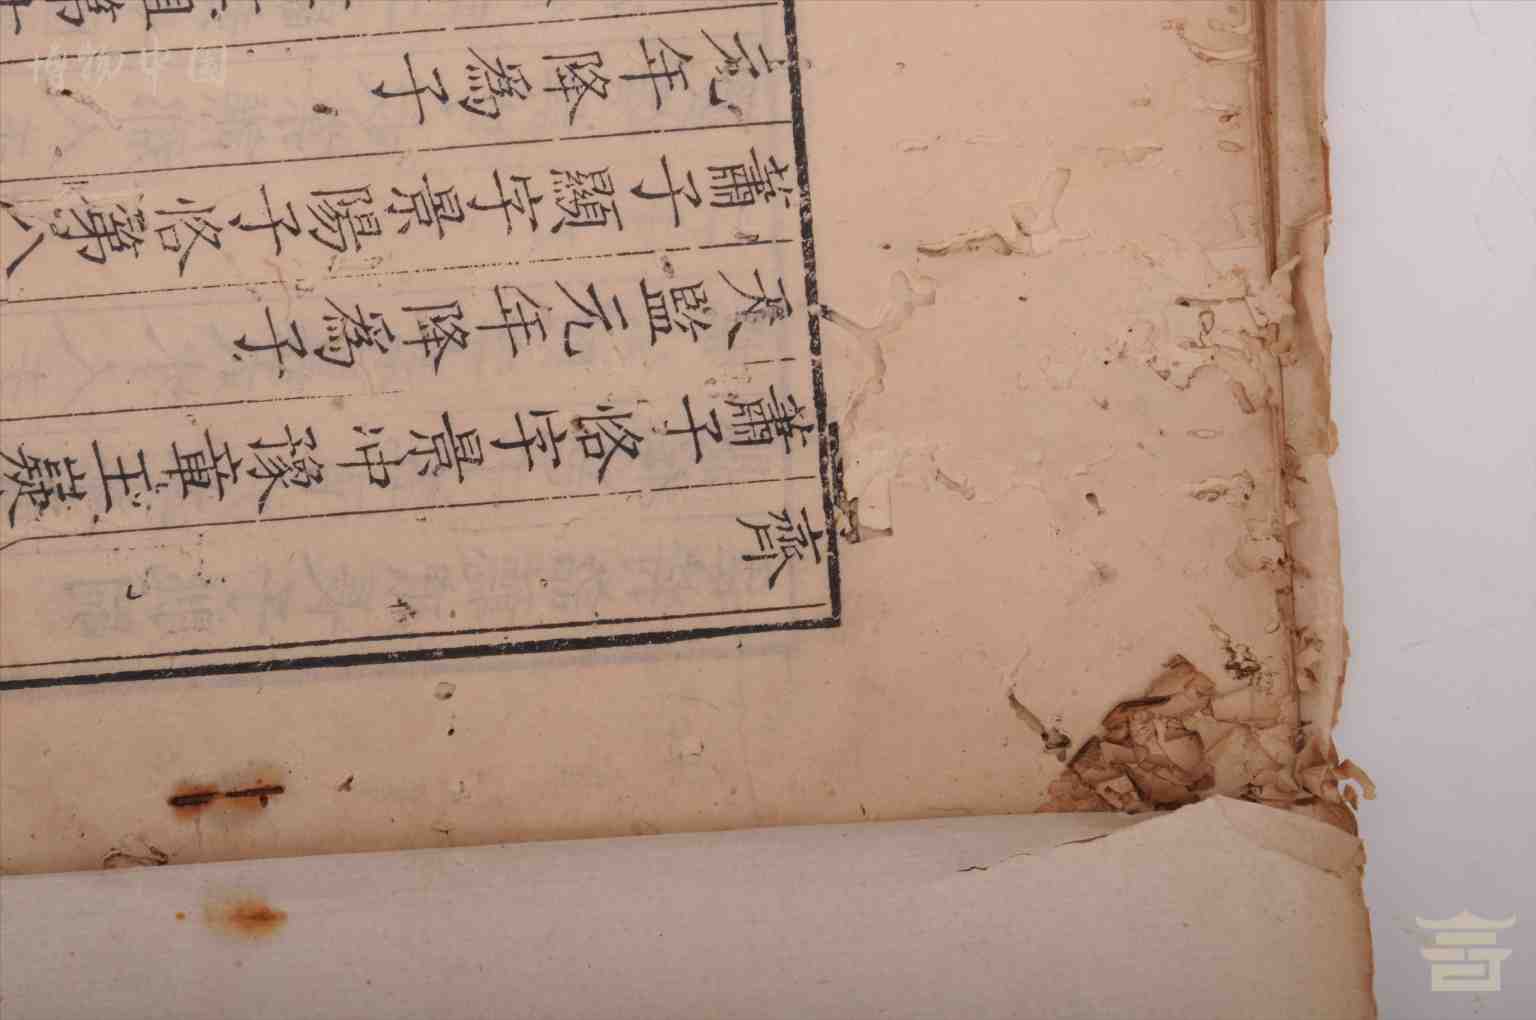 齊
蕭子恪字景冲豫章王嶷
天監元年降爲子
蕭子顯字景陽子恪第八
元年降爲子
博物中國